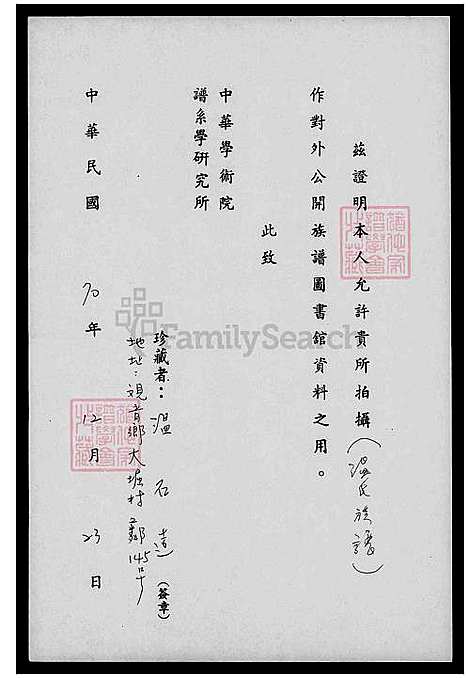 茲證明本人允許貴所拍攝(溫氏族譜)
作對外公開族譜圖書館資料之用。
此致
中華學術院
譜系學研究所
珍藏者：溫石 (簽章)
地址：觀音鄉大堀村 鄰145号
中華民國70年12月23日
FamilySearch